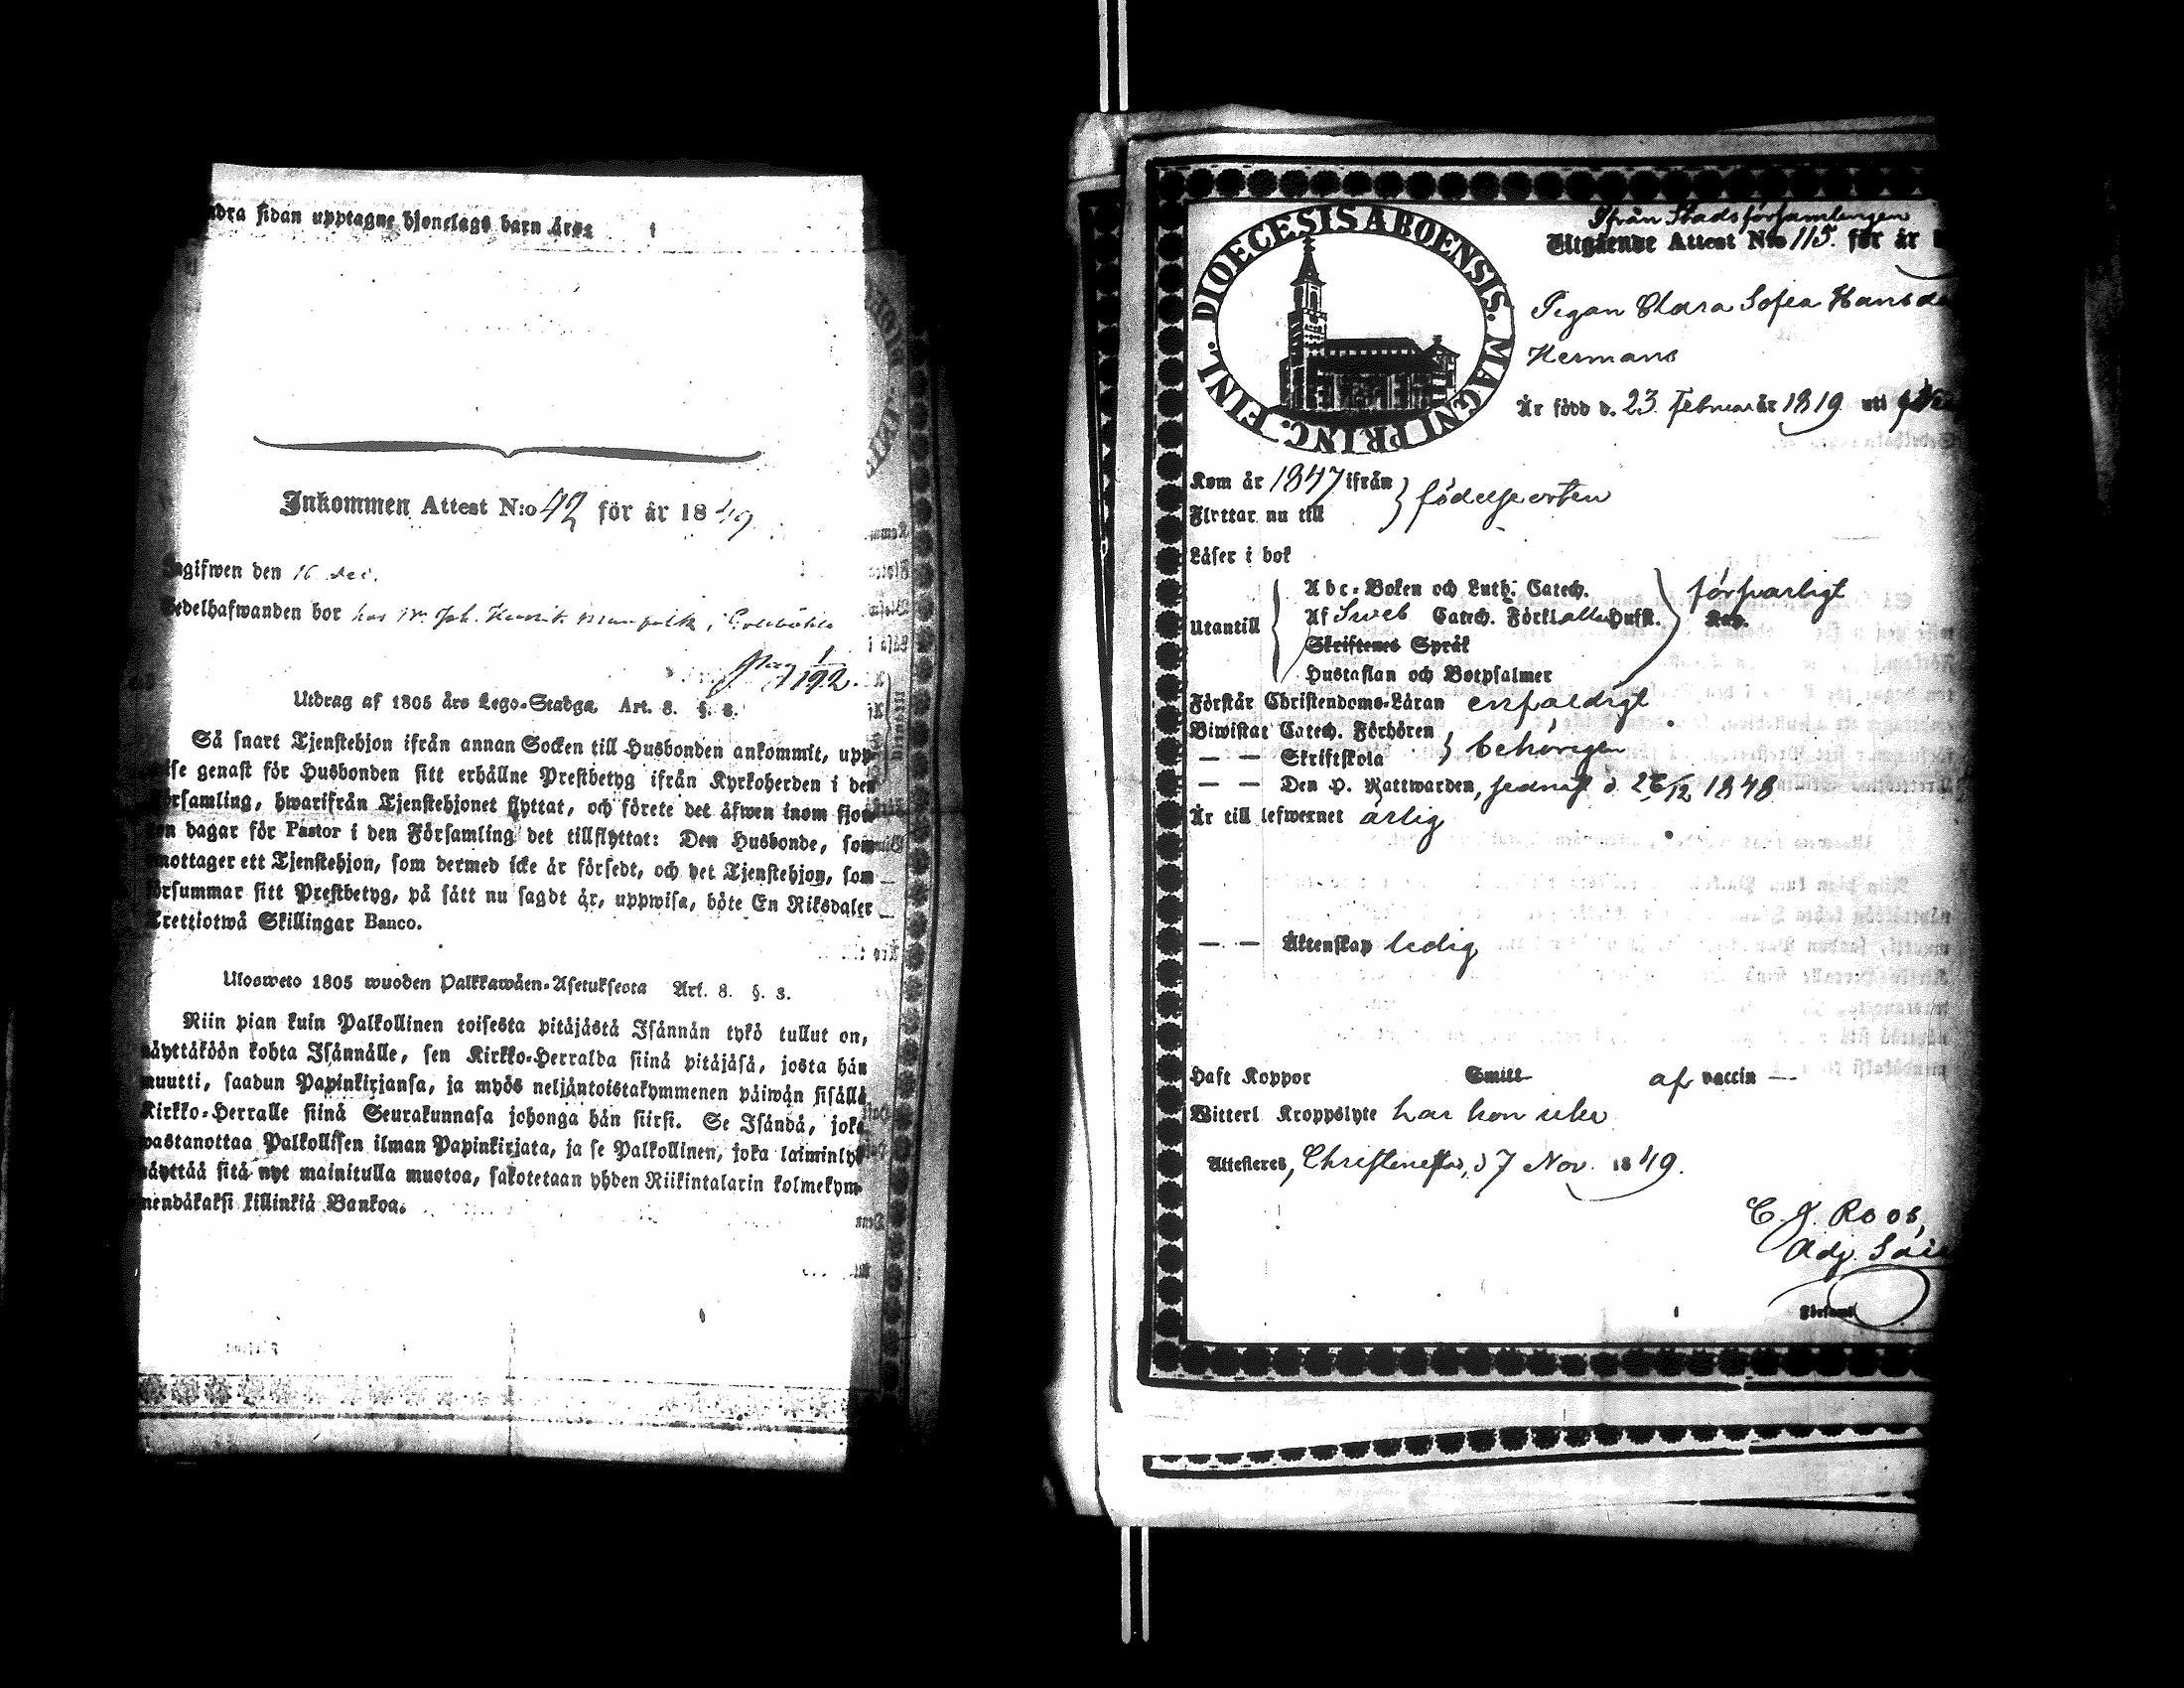 dra sidan upptagne hjonelags barn äro:
Inkommen Attest N:o 42 för år 1849
Ingifwen den 16 Dec.
Sedelhafwanden bor hos
Pag 192.
Utdrag af 1805 års Lego-Stadga, Art. 8. §. 3.
Så snart Tjenstehjon ifrån annan Socken till Husbonden ankommit, upp-
wise genast för Husbonden sitt erhållne Prestbetyg ifrån Kyrkoherden i den
Församling, hwarifrån Tjenstehjonet flyttat, och förete det äfwen inom fjor-
ton dagar för Pastor i den Församling det tillflyttat: Den Husbonde, som
emottager ett Tjenstehjon, som dermed icke är försedt, och det Tjenstehjon, som
försummar sitt Prestbetyg, på sätt nu sagdt är, uppwisa, böte En Riksdaler
Trettiotwå Skillingar Banco.
Ulosweto 1805 wuoden Palkkawäen-Asetuksesta Art. 8. §. 3.
Niin pian kuin Palkollinen toisesta pitäjästä Isännän tykö tullut on,
näyttäköön kohta Isännälle, sen Kirkko-Herralda siinä pitäjäsä, josta hän
muutti, saadun Papinkirjansa, ja myös neljäntoistakymmenen päiwän sisällä
Kirkko-Herralle siinä Seurakunnasa johonga hän siirsi. Se Isändä, joka
wastanottaa Palkollisen ilman Papinkirjata, ja se Palkollinen, joka laiminlyö
näyttää sitä nyt mainitulla muotoa, sakotetaan yhden Riikintalarin kolmekym-
mendäkaksi killinkiä Bankoa.
DIOECESIS ABOENSIS. MAGNI PRINC. FINL.
Ifrån Stadsförsamlingen
Utgående Attest N:o 115. för år
Pigan Clara Sofia Hansd
Hermans
Är född d. 23 Februari år 1819 uti
Kom år 1847 ifrån
Flyttar nu till } födelseorten
Läser i bok
Abc-Boken och Luth. Catech. försvarligt
Utantill Af Sweb Catech. Förkl. alla Hufst. Kap.
Skriftenes Språk
Hustaflan och Botpsalmer
Förstår Christendoms-Läran enfaldigt
Biwistat Catech. Förhören
— — Skriftskola } behörigen
— — Den H. Nattwarden, sednast d 26/12 1848
Är till lefwernet ärlig
— — Äktenskap ledig
Haft Koppor Smitt af vaccin —
Witterl Kroppslyte har hon icke
Attesteres, Christinestad, d 7 Nov. 1849.
C. J. Roos,
Adj. Sac
Församl